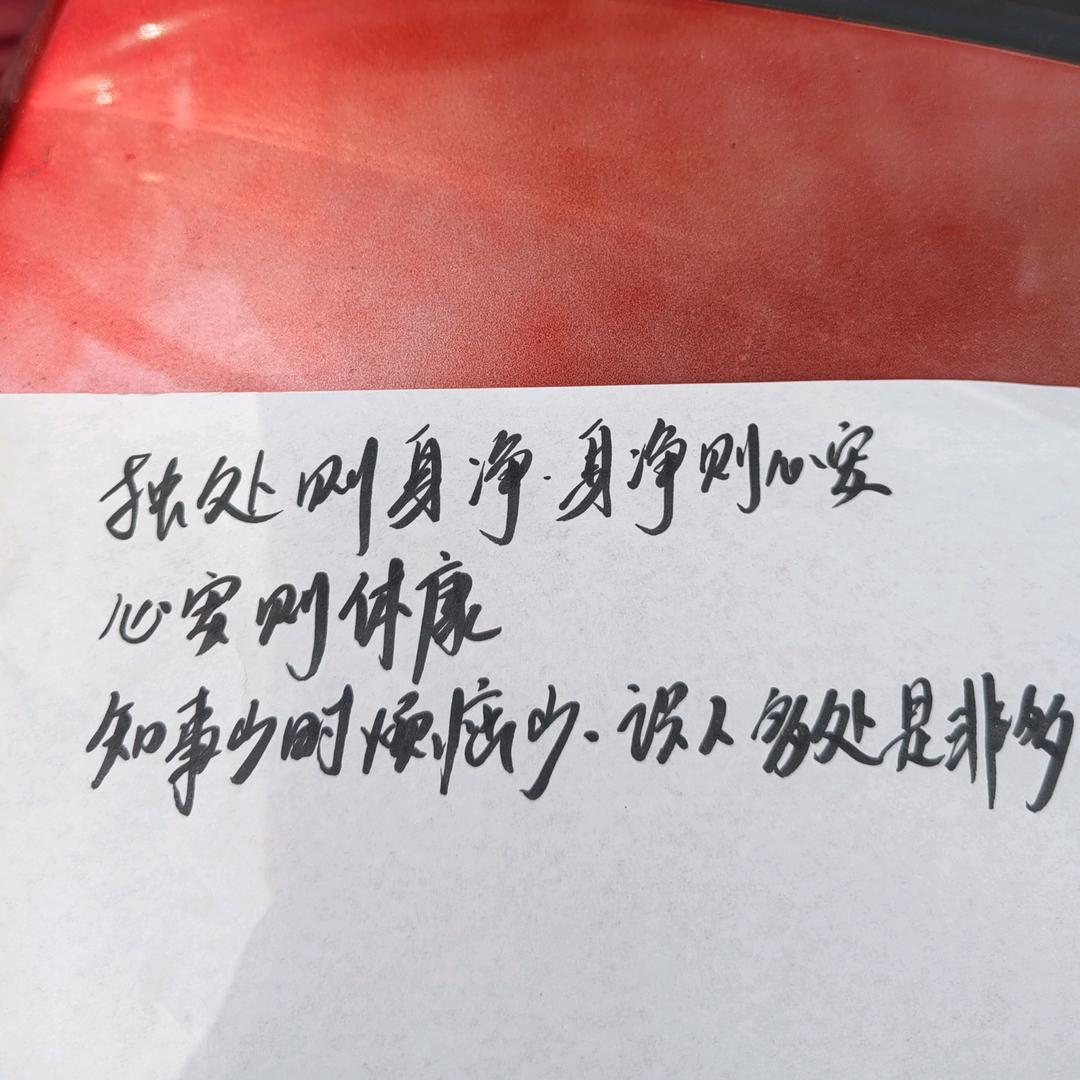 独处则身净.身净则心安
心安则体康
知事少时烦恼少.识人多处是非多